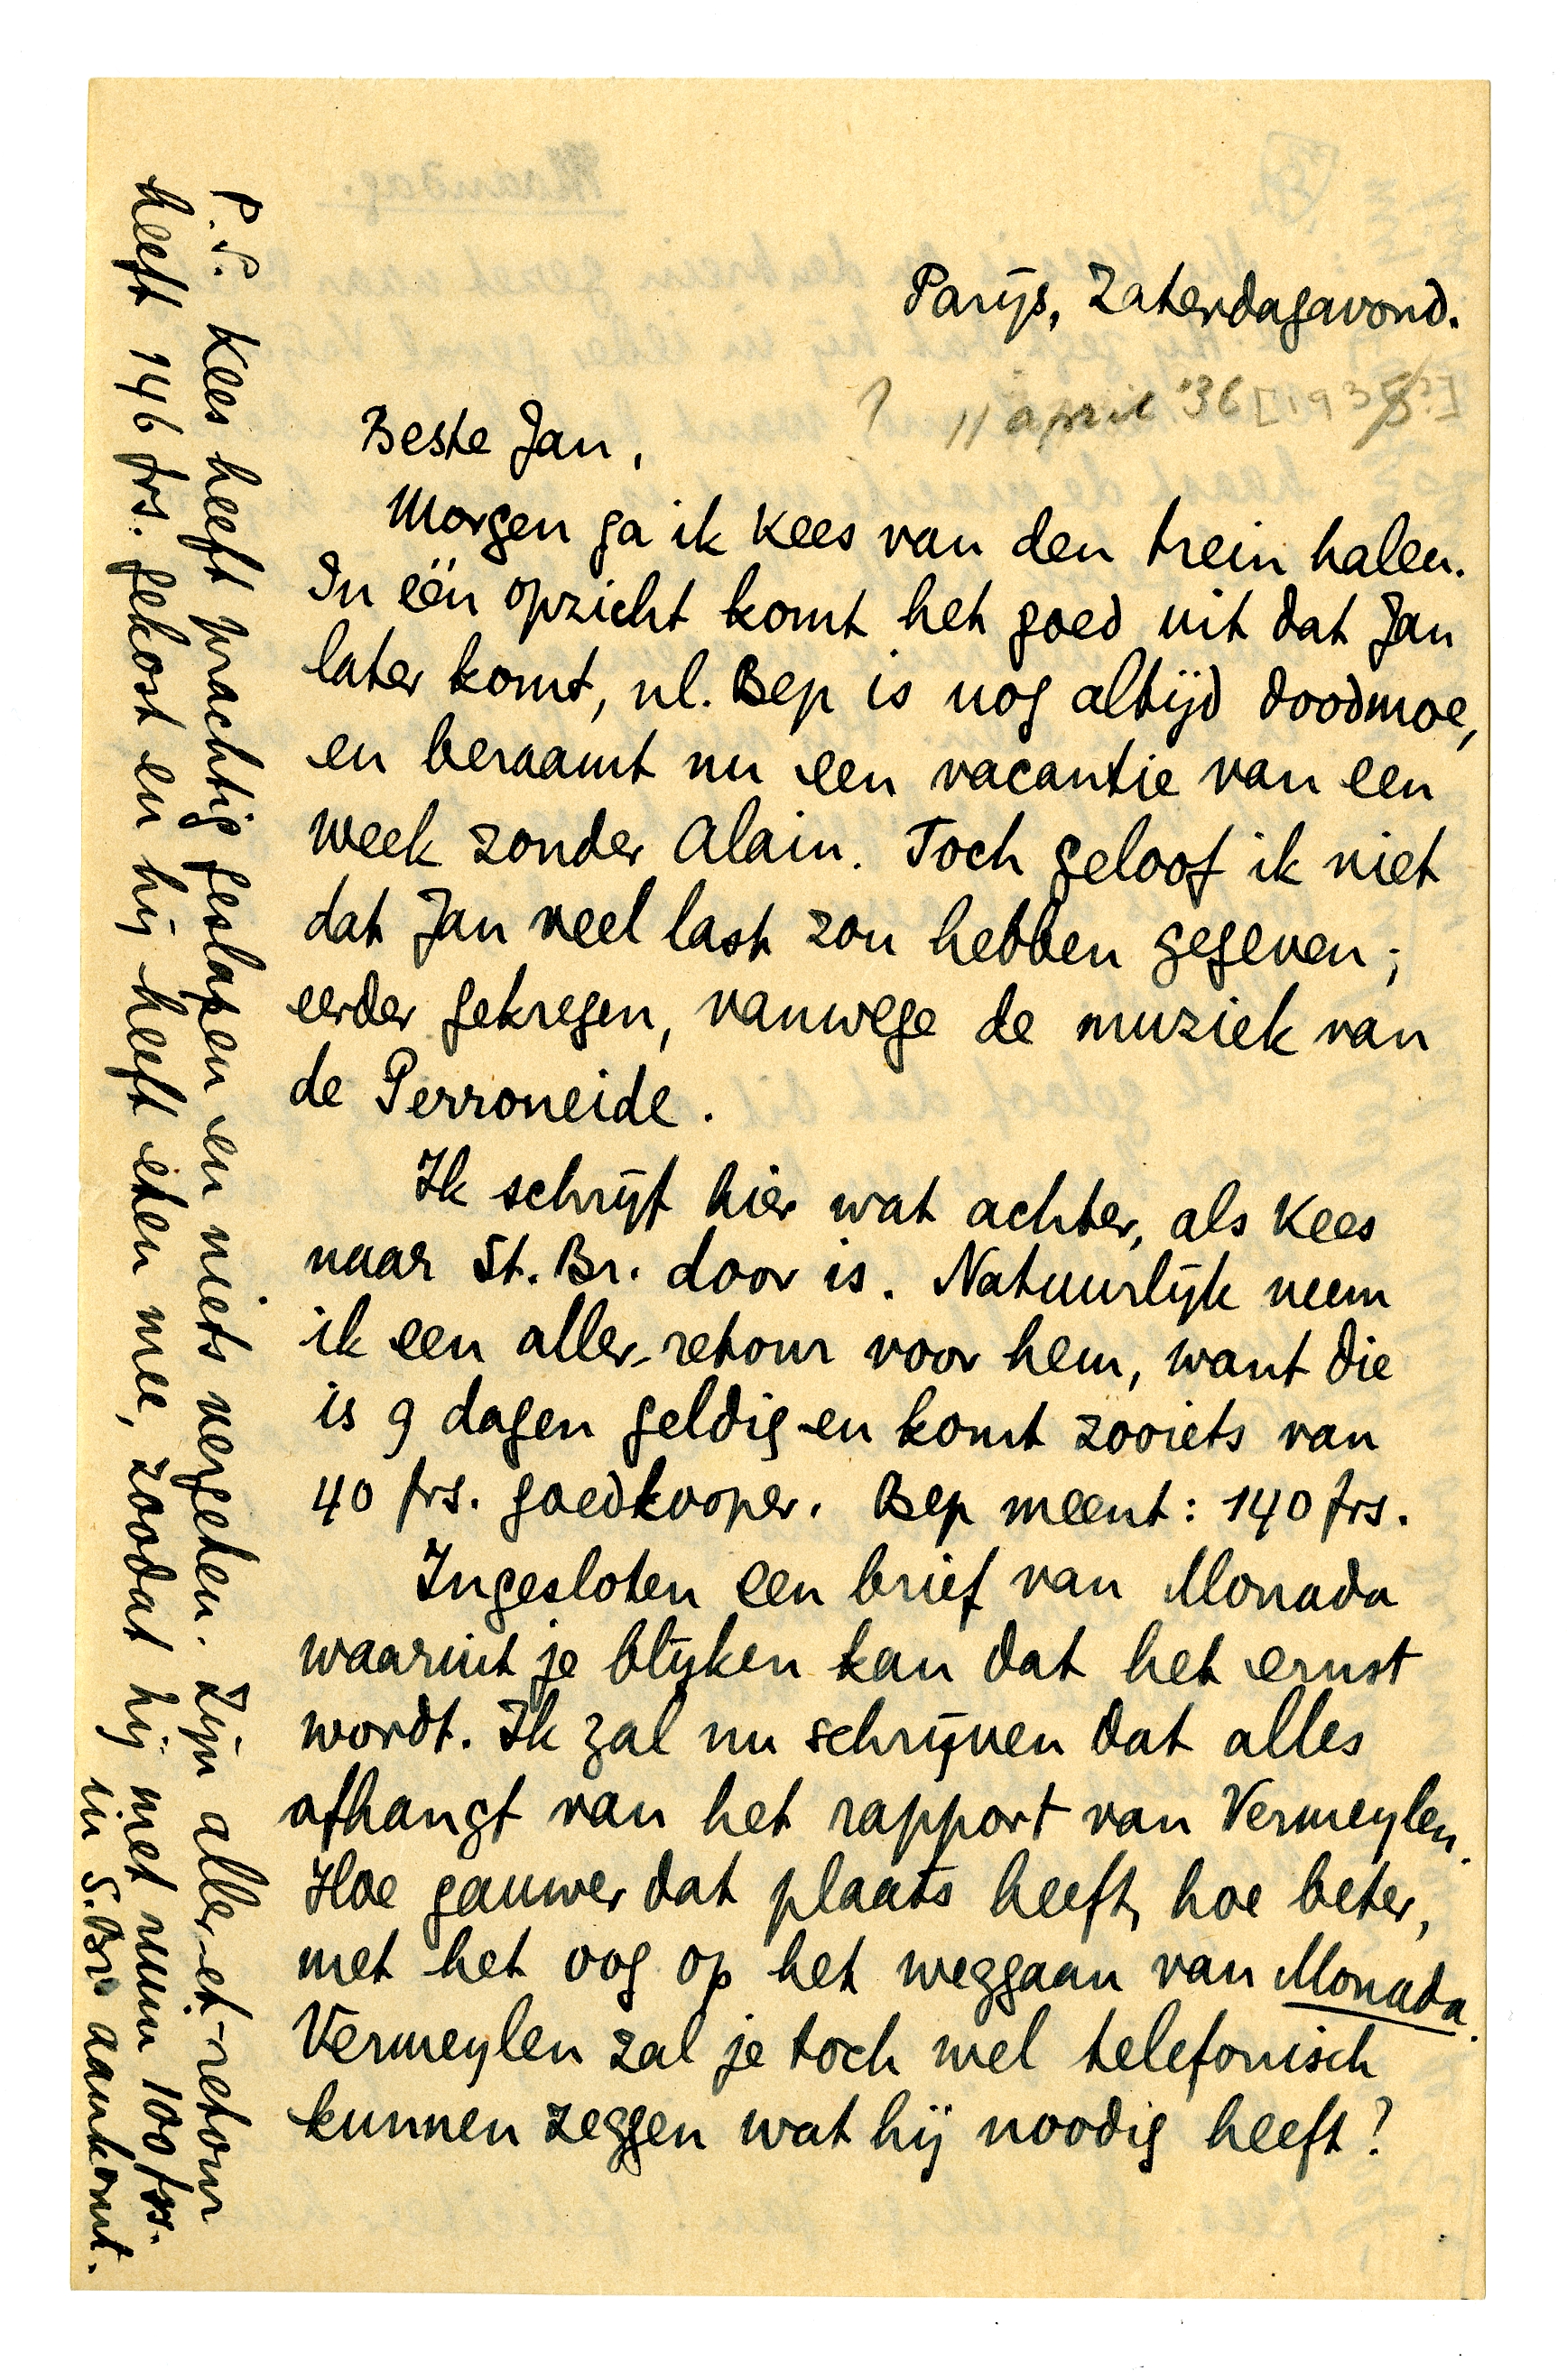 Parijs, Zaterdagavond.
11 april '36 [1935?]
Beste Jan,
Morgen ga ik Kees van den trein halen.
In één opzicht komt het goed uit dat Jan
later komt, nl. Bep is nog altijd doodmoe,
en beraamt nu een vacantie van een
week zonder Alain. Toch geloof ik niet
dat Jan veel last zou hebben gegeven;
eerder gekregen, vanwege de muziek van
de Perroneide.
Ik schrijf hier wat achter, als Kees
naar St. Br. door is. Natuurlijk neem
ik een aller-retour voor hem, want die
is 9 dagen geldig en komt zooiets van
40 frs. goedkooper. Bep meent: 140 frs.
Ingesloten een brief van Monada
waaruit je blijken kan dat het ernst
wordt. Ik zal nu schrijven dat alles
afhangt van het rapport van Vermeylen.
Hoe gauwer dat plaats heeft, hoe beter,
met het oog op het weggaan van Monada.
Vermeylen zal je toch wel telefonisch
kunnen zeggen wat hij noodig heeft?
P.S. Kees heeft prachtig geslapen en niets vergeten. Zijn aller-et-retour
heeft 146 frs. gekost en hij heeft eten mee, zoodat hij met ruim 100 frs.
in S. Br. aankomt.